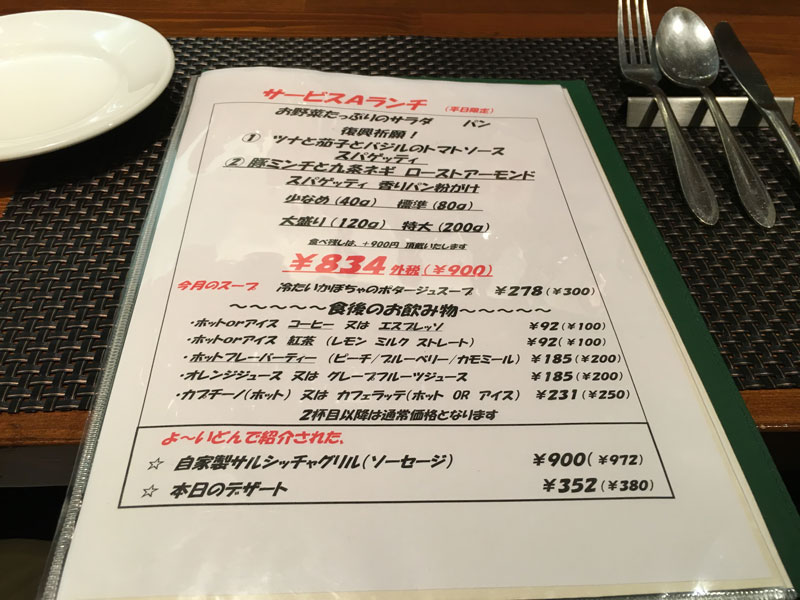 サービスAランチ (平日限定)
お野菜たっぷりのサラダ パン
復興祈願!
① ツナと茄子とバジルのトマトソース
スパゲッティ
② 豚ミンチと九条ネギ ローストアーモンド
スパゲッティ 香りパン粉がけ
少なめ(40g) 標準(80g)
大盛り(120g) 特大(200g)
食べ残しは、+900円 頂戴いたします
¥834外税(¥900)
今月のスープ 冷たいかぼちゃのポタージュスープ ¥278(¥300)
~~~~~食後のお飲み物~~~~~
・ホットorアイス コーヒー 又は エスプレッソ ¥92(¥100)
・ホットorアイス 紅茶 (レモン ミルク ストレート) ¥92(¥100)
・ホットフレーバーティー (ピーチ/ブルーベリー/カモミール) ¥185(¥200)
・オレンジジュース 又は グレープフルーツジュース ¥185(¥200)
・カプチーノ(ホット) 又は カフェラッテ(ホット OR アイス) ¥231(¥250)
2杯目以降は通常価格となります
よ~いどんで紹介された、
☆ 自家製サルシッチャグリル(ソーセージ) ¥900(¥972)
☆ 本日のデザート ¥352(¥380)